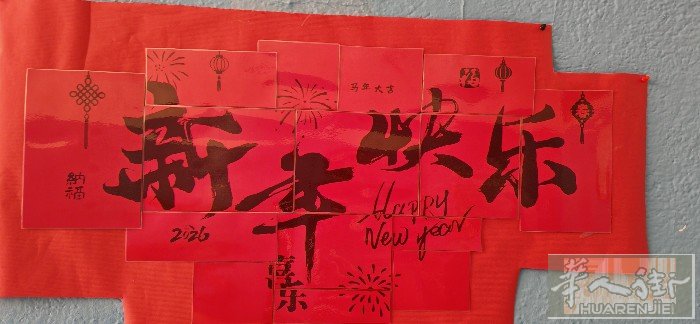 马年大吉
新年快乐
纳福
2026
Happy
New year
喜乐
华人街
HUARENJIE